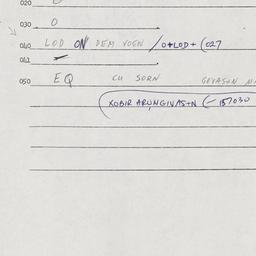 020
030 O
040 LOD ON DEM VOEN / O+LOD+ (027
041
050 EQ CU SORN GEVASTN
XOBIR ARUNGIVAS+N (-157030